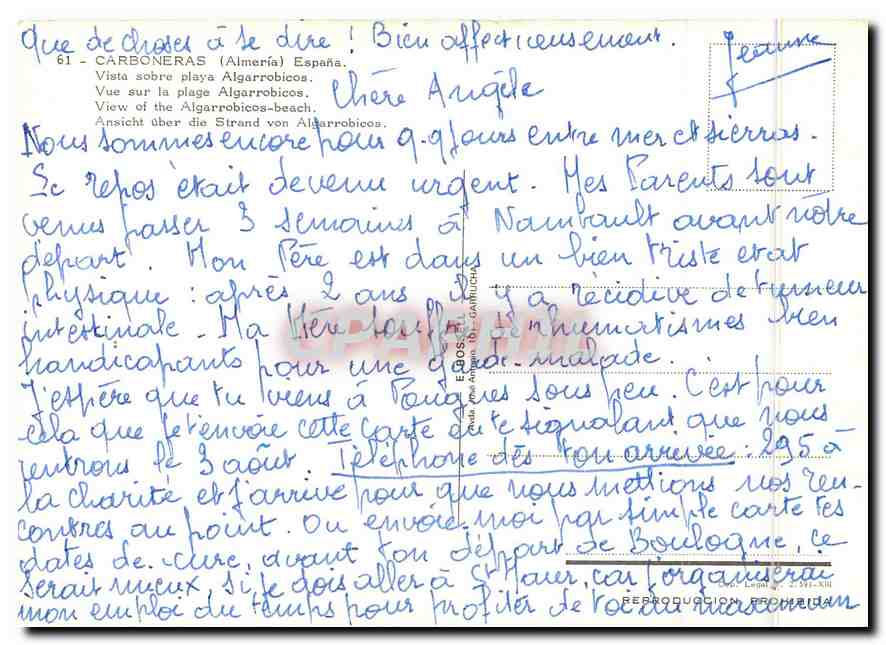 Que de choses à se dire ! Bien affectueusement.
Jeanne
61 - CARBONERAS (Almería) España.
Vista sobre playa Algarrobicos.
Vue sur la plage Algarrobicos.
View of the Algarrobicos-beach.
Ansicht über die Strand von Algarrobicos.
Chère Angèle
Nous sommes encore pour 9-9 jours entre mer et sierras.
Le repos était devenu urgent. Mes Parents sont
venus passer 3 semaines à Nambault avant nôtre
départ. Mon Père est dans un bien triste etat
physique : après 2 ans il y a récidive de tumeur
intestinale. Ma Mère souffre de rhumatismes bien
handicapants pour une garde-malade.
J'espère que tu viens à Pougues sous peu. C'est pour
cela que je t'envoie cette carte en te signalant que nous
rentrons le 3 août. Téléphone dès ton arrivée : 295 à
la charité et j'arrive pour que nous mettions nos ren-
contres au point. Ou envoie-moi par simple carte tes
dates de cure, avant ton départ de Boulogne, ce
serait mieux, si je dois aller à St Maur, car j'organiserai
mon emploi du temps pour profiter de toi au maximum
Avda. José Antonio, 101 - GARRUCHA
CPARAMA
Dep. Legal 2.591-XIII
REPRODUCCION PROHIBIDA